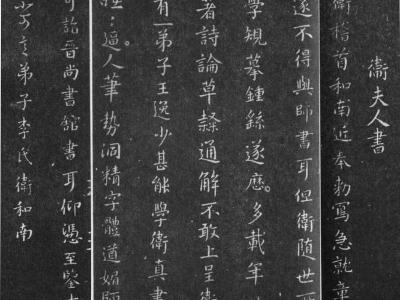 衛夫人書
衛稽首和南近奉勅寫急就章
遂不得與師書耳但衛隨世
學規摹鍾繇遂歷多載年
著詩論草隸通解不敢上呈衛
有一弟子王逸少甚能學衛真書
逼人筆勢洞精字體遒媚師
可詣晉尚書舘書耳仰憑至鑒
弟子李氏衛和南